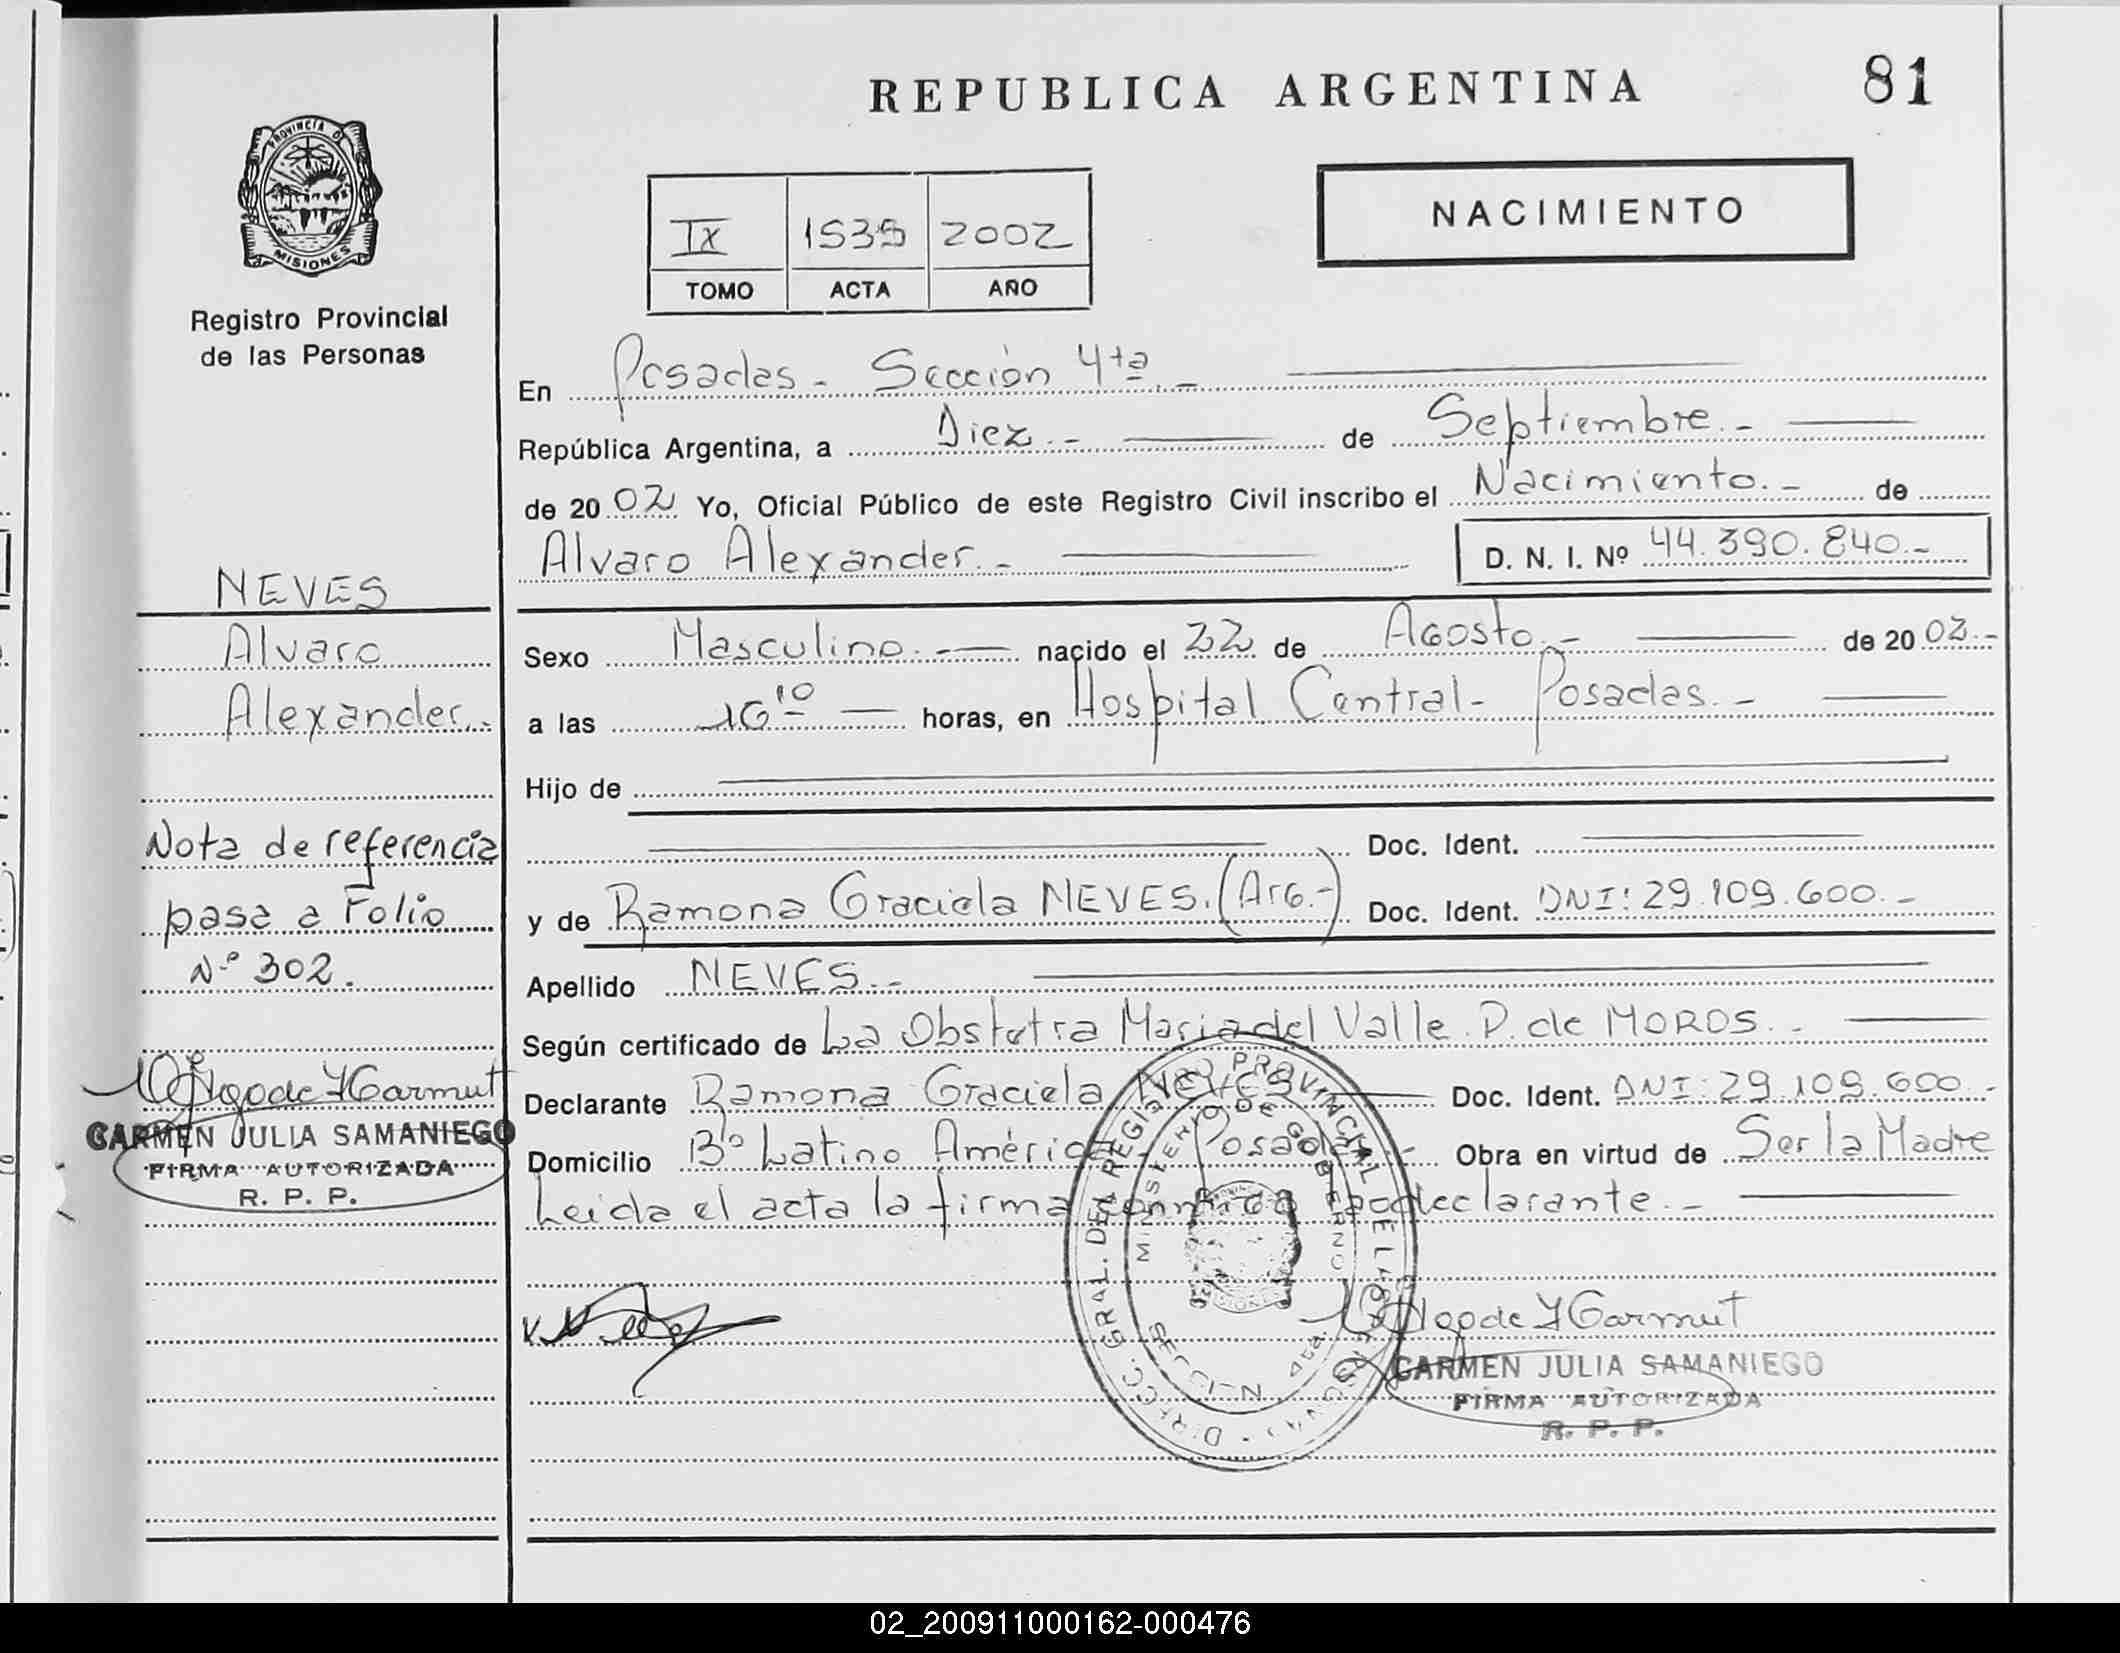 REPUBLICA ARGENTINA
81
PROVINCIA DE
MISIONES
Registro Provincial
de las Personas
IX 1535 2002
TOMO ACTA AÑO
NACIMIENTO
En Posadas - Sección 4ta. -
República Argentina, a Diez. - de Septiembre. -
de 2002 Yo, Oficial Público de este Registro Civil inscribo el Nacimiento. - de
Alvaro Alexander. - D. N. I. Nº 44.390.840. -
Sexo Masculino. - nacido el 22 de Agosto. - de 2002. -
a las 16 10 horas, en Hospital Central - Posadas. -
Hijo de
Doc. Ident.
y de Ramona Graciela NEVES. (Arg. -) Doc. Ident. DNI: 29.109.600. -
Apellido NEVES. -
Según certificado de La Obstetra Maria del Valle P. de MOROS. -
Declarante Ramona Graciela NEVES Doc. Ident. DNI: 29.109.600. -
Domicilio Bº Latino América - Posadas. - Obra en virtud de Ser la Madre
Leida el acta la firma conmigo declarante. -
CARMEN JULIA SAMANIEGO
FIRMA AUTORIZADA
R. P. P.
NEVES
Alvaro
Alexander. -
Nota de referencia
pasa a Folio
Nº 302.
CARMEN JULIA SAMANIEGO
FIRMA AUTORIZADA
R. P. P.
DIRECC. GRAL. DEL REGISTRO PROVINCIAL DE LAS PERSONAS
MINISTERIO DE GOBIERNO
SECCION 4ta.
02_200911000162-000476